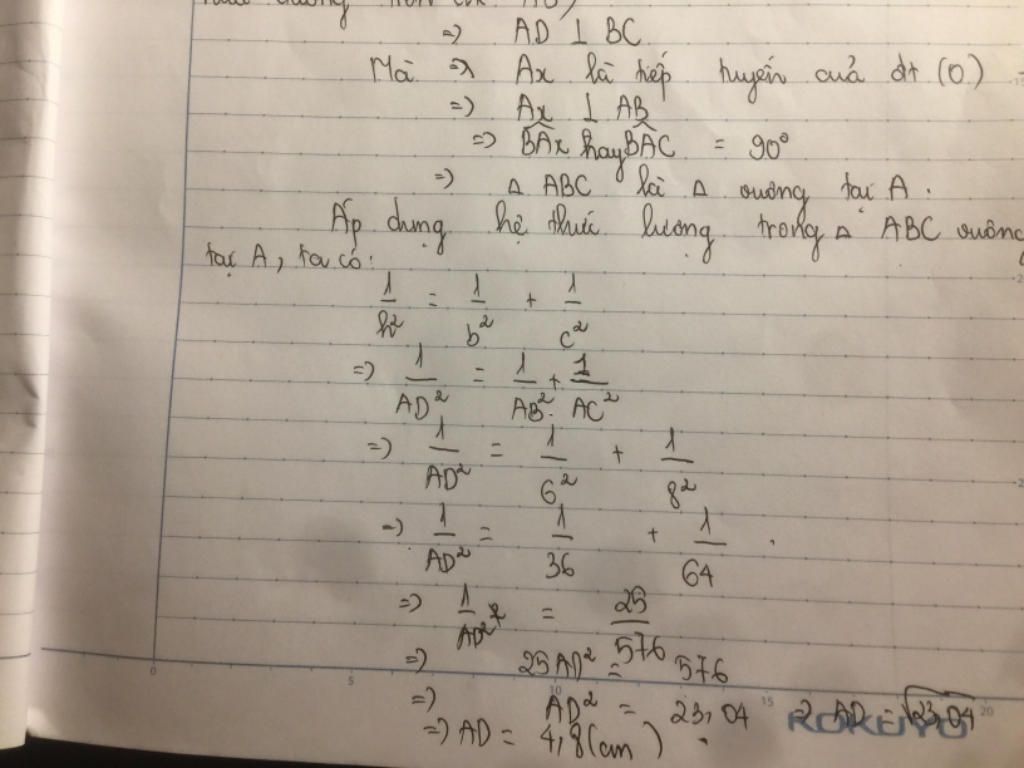 ⇒ AD ⊥ BC
Mà ⇒ Ax là tiếp tuyến của đt (O)
⇒ Ax ⊥ AB
⇒ BÂx hay BÂC = 90°
⇒ △ ABC là △ vuông tại A.
Áp dụng hệ thức lượng trong △ ABC vuông
tại A, ta có:
1/h² = 1/b² + 1/c²
⇒ 1/AD² = 1/AB² + 1/AC²
⇒ 1/AD² = 1/6² + 1/8²
⇒ 1/AD² = 1/36 + 1/64
⇒ 1/AD² = 25/576
⇒ 25AD² = 576
⇒ AD² = 23,04 ⇒ AD = √23,04
⇒ AD = 4,8 (cm)
0 5 10 15 20
KOKUYO